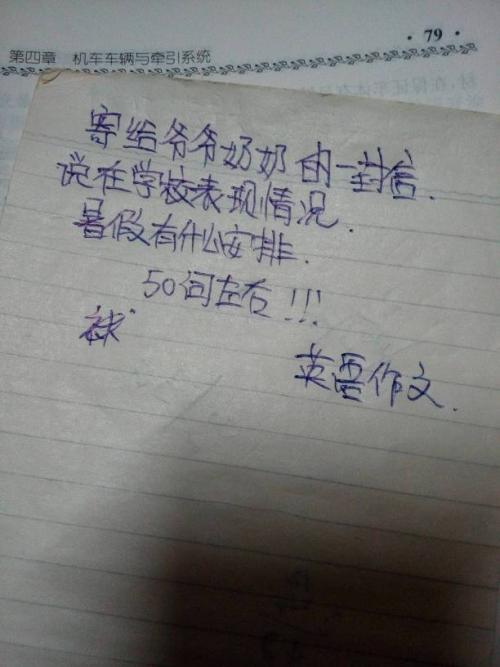 · 79 ·
第四章 机车车辆与牵引系统
寄给爷爷奶奶的一封信.
说在学校表现情况.
暑假有什么安排.
50词左右!!!
英语作文.